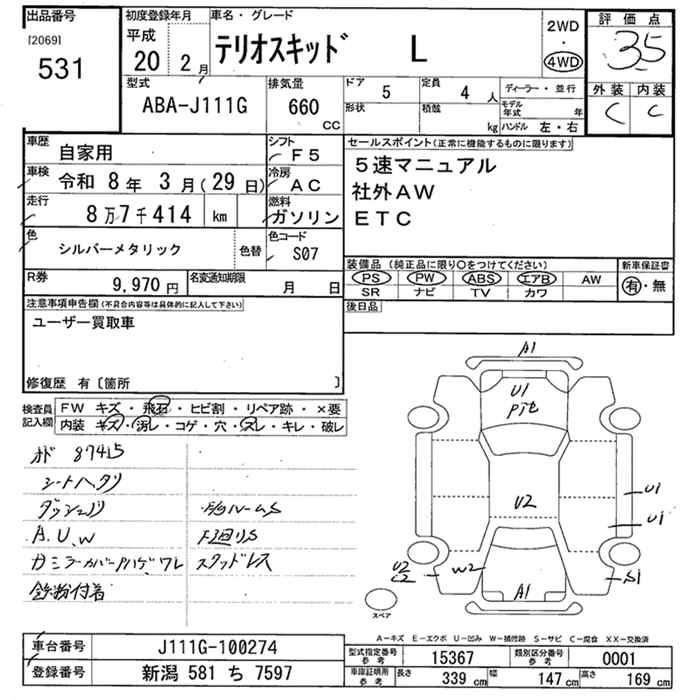 出品番号
[2069]
531
初度登録年月
平成
20 2 月
車名・グレード
テリオスキッド L
2WD
・
4WD
評価点
3.5
外装 内装
C C
型式
ABA-J111G
排気量
660
CC
ドア
5
定員
4 人
形状
積載
kg
ディーラー・並行
モデル年式 年
ハンドル 左・右
車歴
自家用
シフト
F5
車検
令和 8 年 3 月(29 日)
冷房
AC
走行
8 万 7 千 414 km
燃料
ガソリン
色
シルバーメタリック
色替
色コード
S07
R券
9,970 円
名変通知期限
月 日
セールスポイント(正常に機能するものに限ります)
5速マニュアル
社外AW
ETC
装備品 (純正品に限り○をつけてください)
PS PW ABS エアB AW
SR ナビ TV カワ
新車保証書
有・無
後日品
注意事項申告欄(不具合内容等は具体的に記入して下さい)
ユーザー買取車
修復歴 有〔箇所 〕
検査員記入欄
FW キズ・飛石・ヒビ割・リペア跡・×要
内装 キズ・汚レ・コゲ・穴・スレ・キレ・破レ
87415
シートヘタリ
A.U.W
下廻りS
スタッドレス
鉄粉付着
A1
U1
U2
U1
U1
S1
W2
U2
C2
A1
スペア
A－キズ E－エクボ U－凹み W－補修跡 S－サビ C－腐食 XX－交換済
車台番号
J111G-100274
登録番号
新潟 581 ち 7597
型式指定番号
参考
15367
類別区分番号
参考
0001
車庫証明用
参考
長さ 339 cm 幅 147 cm 高さ 169 cm